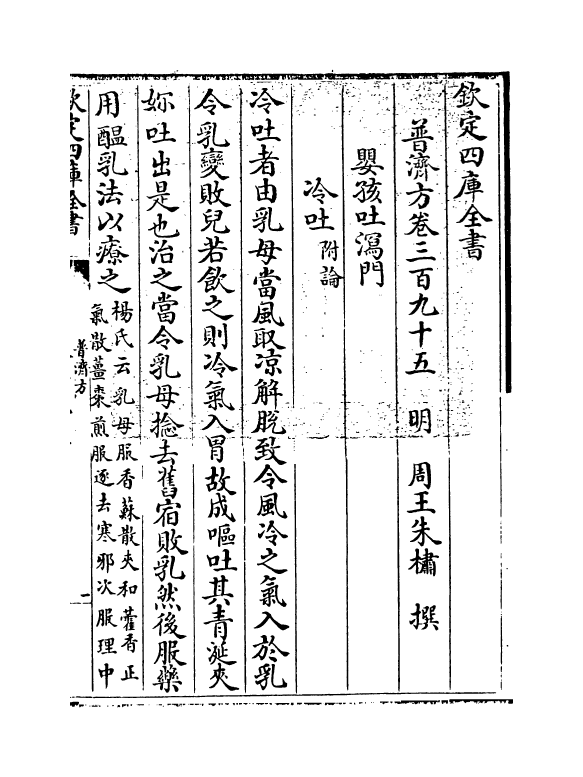 欽定四庫全書
普濟方卷三百九十五 明 周王朱橚 撰
嬰孩吐瀉門
冷吐附論
冷吐者由乳母當風取凉解脫致令風冷之氣入於乳
令乳變敗兒若飲之則冷氣入胃故成嘔吐其青涎夾
妳吐出是也治之當令乳母捻去舊宿敗乳然後服藥
用醖乳法以療之
楊氏云乳母服香蘇散夾和藿香正
氣散薑棗煎服逐去寒邪次服理中
欽定四庫全書
普濟方
一